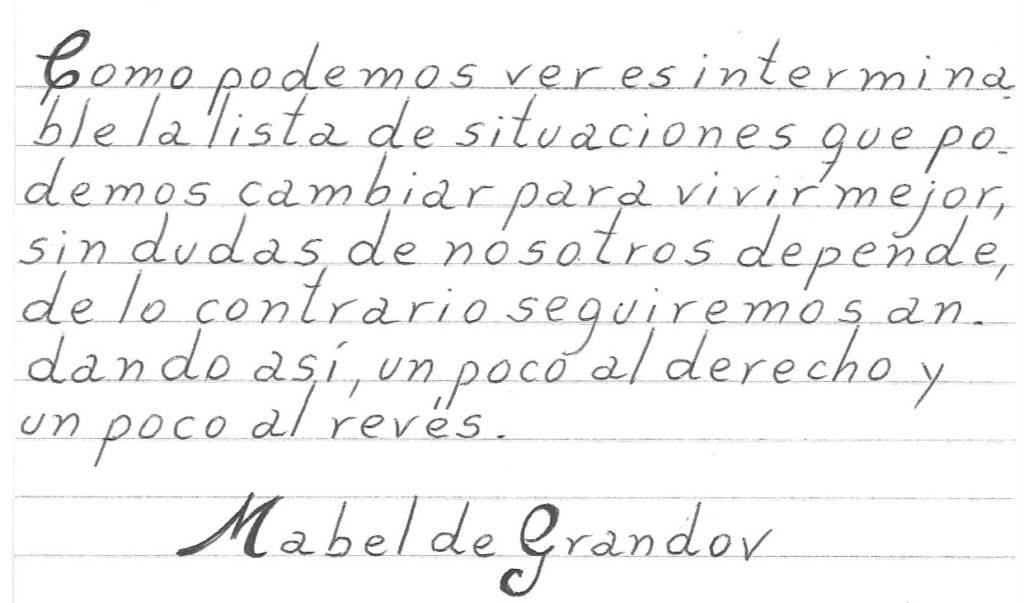 Como podemos ver es intermina-
ble la lista de situaciones que po-
demos cambiar para vivir mejor,
sin dudas de nosotros depende,
de lo contrario seguiremos an-
dando así, un poco al derecho y
un poco al revés.
Mabel de Grandov